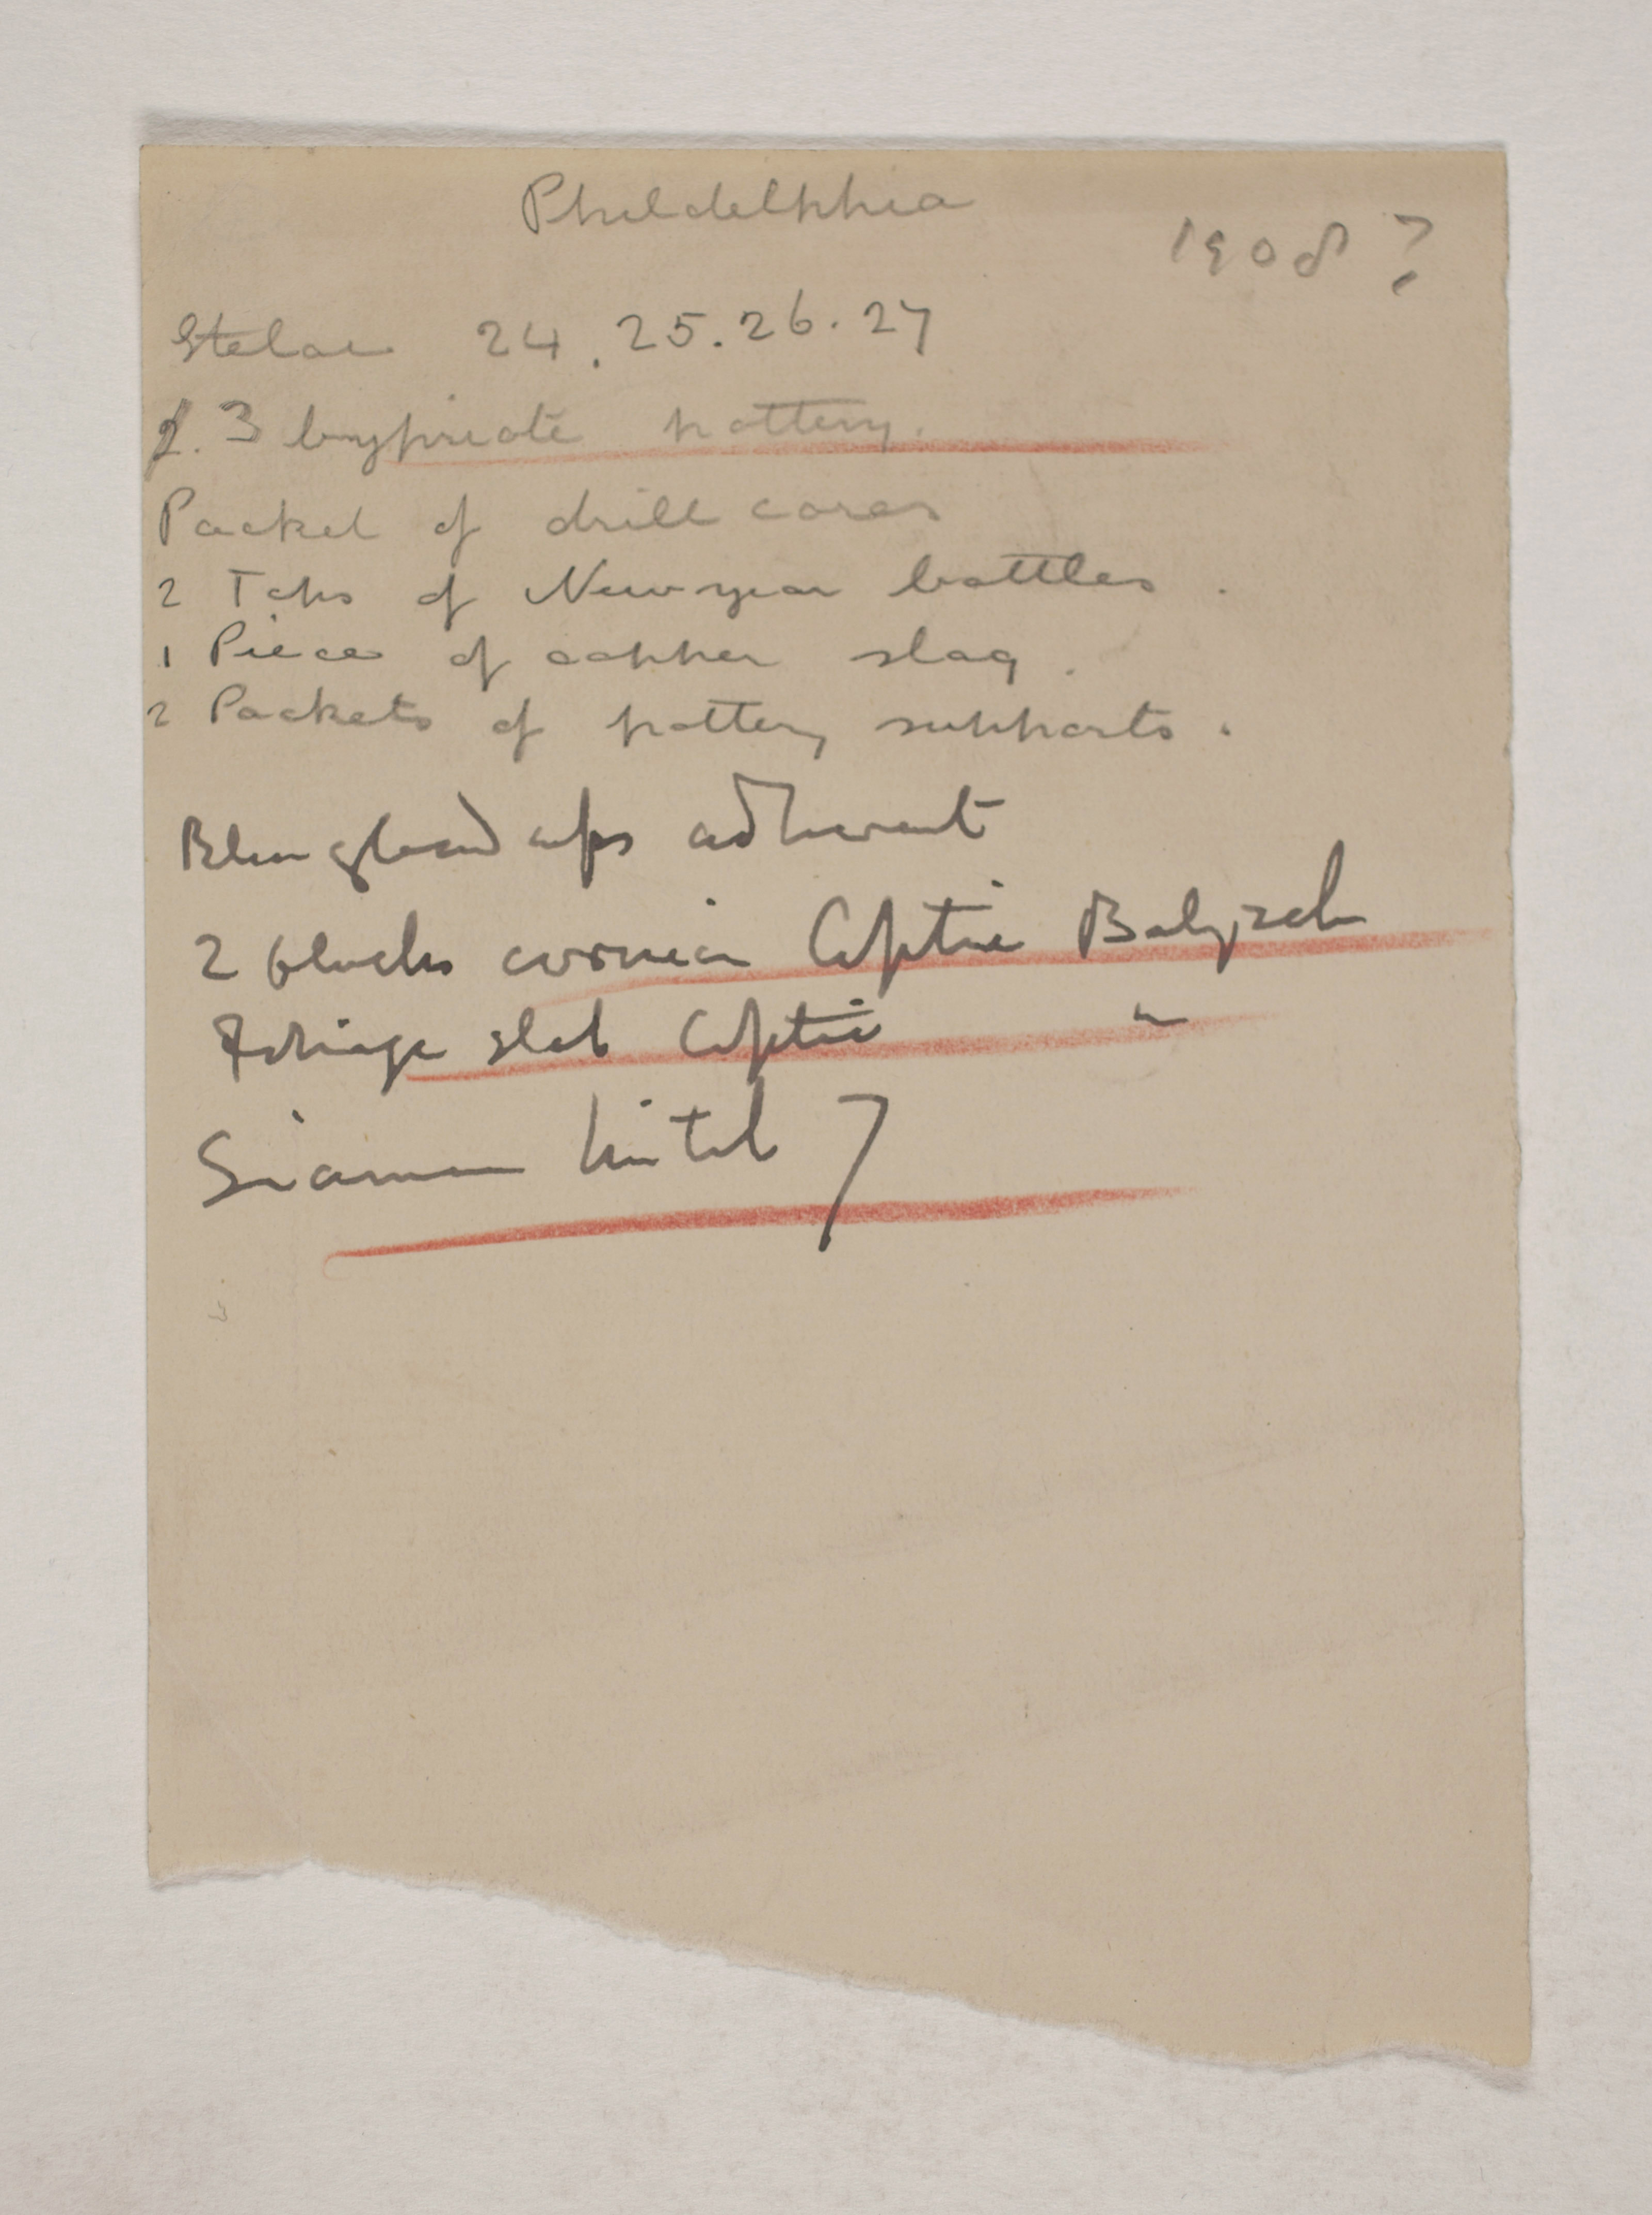 Phildelphia
1908 ?
Stelae 24.25.26.27
2. 3 pottery.
Packet of drill cores
2 Tops of New year bottles.
1 Piece of copper slag.
2 Packets of pottery supports.
Blue glazed cups adherent
2 blocks cornice Coptic Balyzeh
Foliage slab Coptic "
Siamun lintel 7